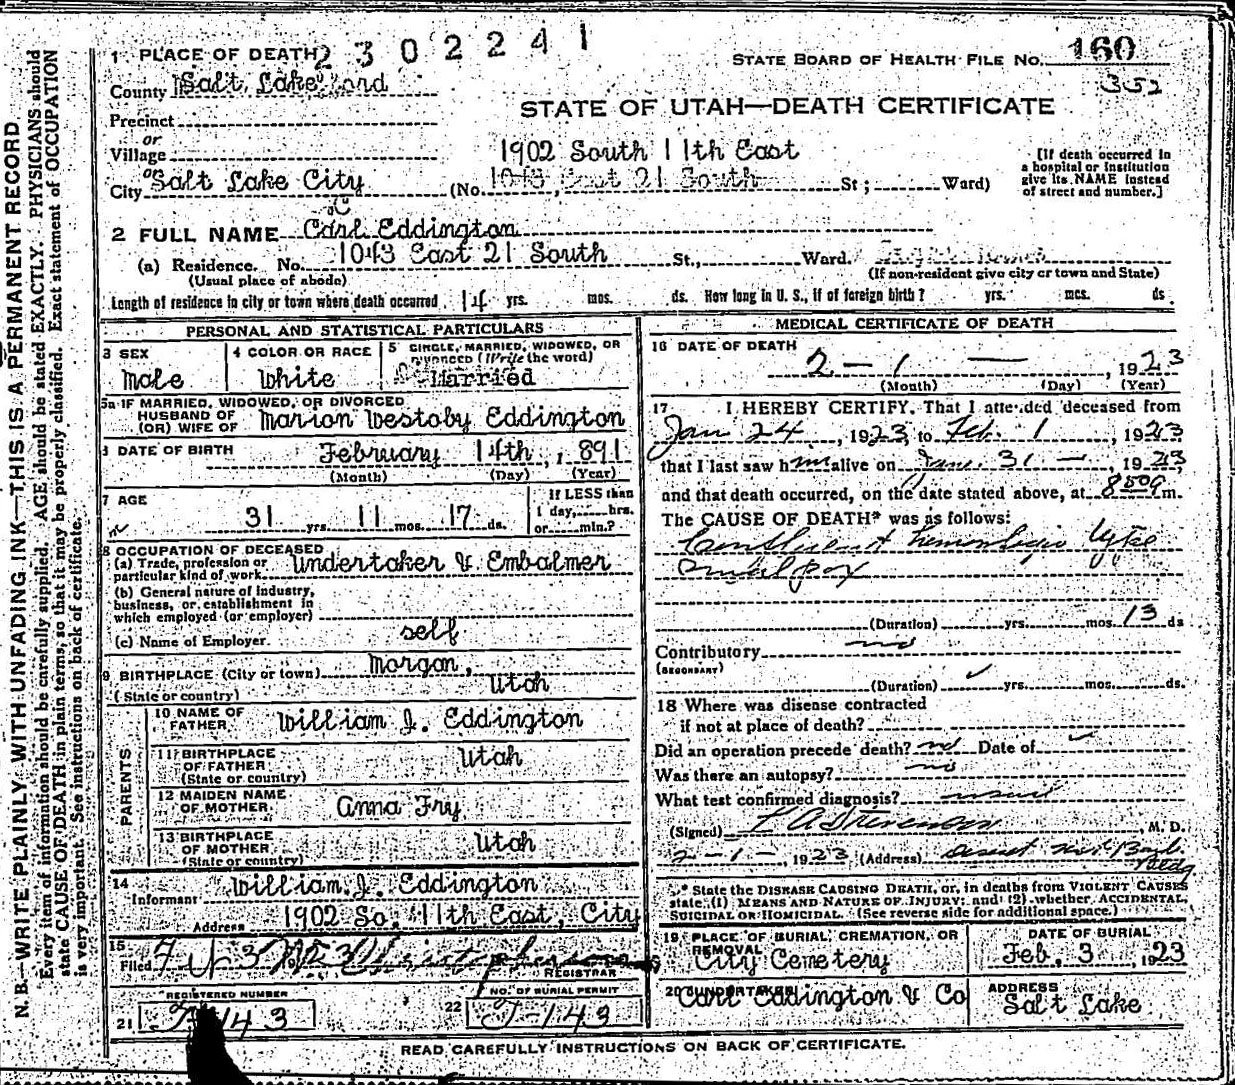 N. B.—WRITE PLAINLY, WITH UNFADING INK—THIS IS A PERMANENT RECORD
Every item of information should be carefully supplied. AGE should be stated EXACTLY. PHYSICIANS should
state CAUSE OF DEATH in plain terms, so that it may be properly classified. Exact statement of OCCUPATION
is very important. See instructions on back of certificate.
2302241
1 PLACE OF DEATH
STATE BOARD OF HEALTH FILE NO. 160
352
County Salt Lake
STATE OF UTAH—DEATH CERTIFICATE
Precinct
or
Village
1902 South 11th East
[If death occurred in a hospital or institution give its NAME instead of street and number.]
or
City Salt Lake City (No. 1043 East 21 South St; Ward)
C
2 FULL NAME Carl Eddington
(a) Residence. No. 1043 East 21 South St., Ward.
(Usual place of abode) (If non-resident give city or town and State)
Length of residence in city or town where death occurred 14 yrs. mos. ds. How long in U. S., if of foreign birth? yrs. mos. ds
PERSONAL AND STATISTICAL PARTICULARS
3 SEX
Male
4 COLOR OR RACE
White
5 SINGLE, MARRIED, WIDOWED, OR
DIVORCED (Write the word)
Married
5a IF MARRIED, WIDOWED, OR DIVORCED
HUSBAND OF
(OR) WIFE OF Marion Westoby Eddington
DATE OF BIRTH February 14th, 1891
(Month) (Day) (Year)
7 AGE
31 yrs. 11 mos. 17 ds.
If LESS than
1 day, hrs.
or min.?
8 OCCUPATION OF DECEASED
(a) Trade, profession or
particular kind of work Undertaker & Embalmer
(b) General nature of industry,
business, or establishment in
which employed (or employer)
(c) Name of Employer self
9 BIRTHPLACE (City or town) Morgan,
(State or country) Utah
PARENTS
10 NAME OF
FATHER William J. Eddington
11 BIRTHPLACE
OF FATHER
(State or country) Utah
12 MAIDEN NAME
OF MOTHER Anna Fry
13 BIRTHPLACE
OF MOTHER
(State or country) Utah
14
Informant William J. Eddington
Address 1902 So. 11th East, City
15
Filed
REGISTRAR
REGISTERED NUMBER
21 143
NO. OF BURIAL PERMIT
22 J-143
MEDICAL CERTIFICATE OF DEATH
16 DATE OF DEATH
2 - 1 - , 1923
(Month) (Day) (Year)
17 I HEREBY CERTIFY, That I attended deceased from
Jan 24, 1923, to Feb. 1, 1923
that I last saw him alive on Jan. 31 - , 1923
and that death occurred, on the date stated above, at m.
The CAUSE OF DEATH* was as follows:
Confluent hemorhagic type
Small pox
(Duration) yrs. mos. 13 ds
Contributory no
(SECONDARY)
(Duration) yrs. mos. ds.
18 Where was disease contracted
if not at place of death?
Did an operation precede death? no Date of
Was there an autopsy? no
What test confirmed diagnosis? usual
(Signed) , M. D.
2 - 1 - 1923 (Address) Deseret Nat. Bank
Bldg
* State the DISEASE CAUSING DEATH, or, in deaths from VIOLENT CAUSES
state (1) MEANS AND NATURE OF INJURY; and (2) whether ACCIDENTAL,
SUICIDAL OR HOMICIDAL. (See reverse side for additional space.)
19 PLACE OF BURIAL, CREMATION, OR
REMOVAL
City Cemetery
DATE OF BURIAL
Feb. 3 1923
20 UNDERTAKER
Carl Eddington & Co
ADDRESS
Salt Lake
READ CAREFULLY INSTRUCTIONS ON BACK OF CERTIFICATE.